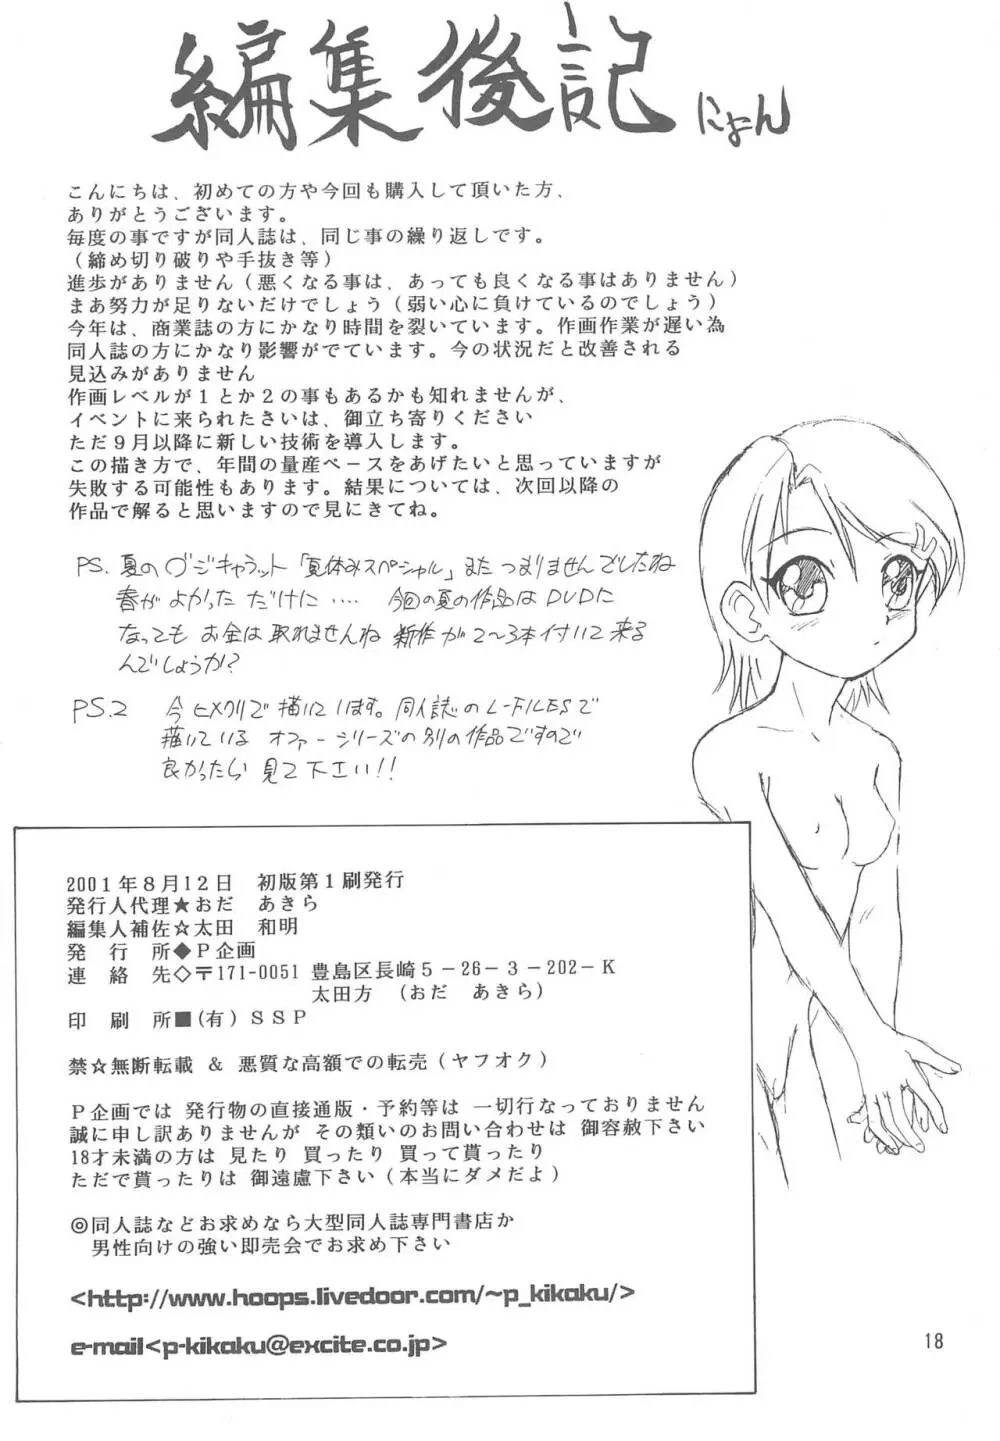 編集後記 にょん
こんにちは、初めての方や今回も購入して頂いた方、
ありがとうございます。
毎度の事ですが同人誌は、同じ事の繰り返しです。
（締め切り破りや手抜き等）
進歩がありません（悪くなる事は、あっても良くなる事はありません）
まあ努力が足りないだけでしょう（弱い心に負けているのでしょう）
今年は、商業誌の方にかなり時間を裂いています。作画作業が遅い為
同人誌の方にかなり影響がでています。今の状況だと改善される
見込みがありません
作画レベルが１とか２の事もあるかも知れませんが、
イベントに来られたさいは、御立ち寄りください
ただ９月以降に新しい技術を導入します。
この描き方で、年間の量産ペースをあげたいと思っていますが
失敗する可能性もあります。結果については、次回以降の
作品で解ると思いますので見にきてね。
PS. 夏のデジキャラット「夏休みスペシャル」またつまりませんでしたね
春がよかっただけに‥‥ 今回の夏の作品はDVDに
なってもお金は取れませんね 新作が2〜3本付いて来る
んでしょうか?
PS.2 今ヒメクリで描いています。同人誌のL-FILESで
描いている オファーシリーズの別の作品ですので
良かったら 見て下さい!!
2001年８月12日　初版第１刷発行
発行人代理★おだ　あきら
編集人補佐☆太田　和明
発　行　所◆Ｐ企画
連　絡　先◇〒171-0051 豊島区長崎５－26－３－202－Ｋ
太田方　（おだ　あきら）
印　刷　所■(有）ＳＳＰ
禁☆無断転載 ＆ 悪質な高額での転売（ヤフオク）
Ｐ企画では 発行物の直接通版・予約等は 一切行なっておりません
誠に申し訳ありませんが その類いのお問い合わせは 御容赦下さい
18才未満の方は 見たり 買ったり 買って貰ったり
ただで貰ったりは 御遠慮下さい（本当にダメだよ）
◎同人誌などお求めなら大型同人誌専門書店か
男性向けの強い即売会でお求め下さい
<http://www.hoops.livedoor.com/~p_kikaku/>
e-mail<p-kikaku@excite.co.jp>
18